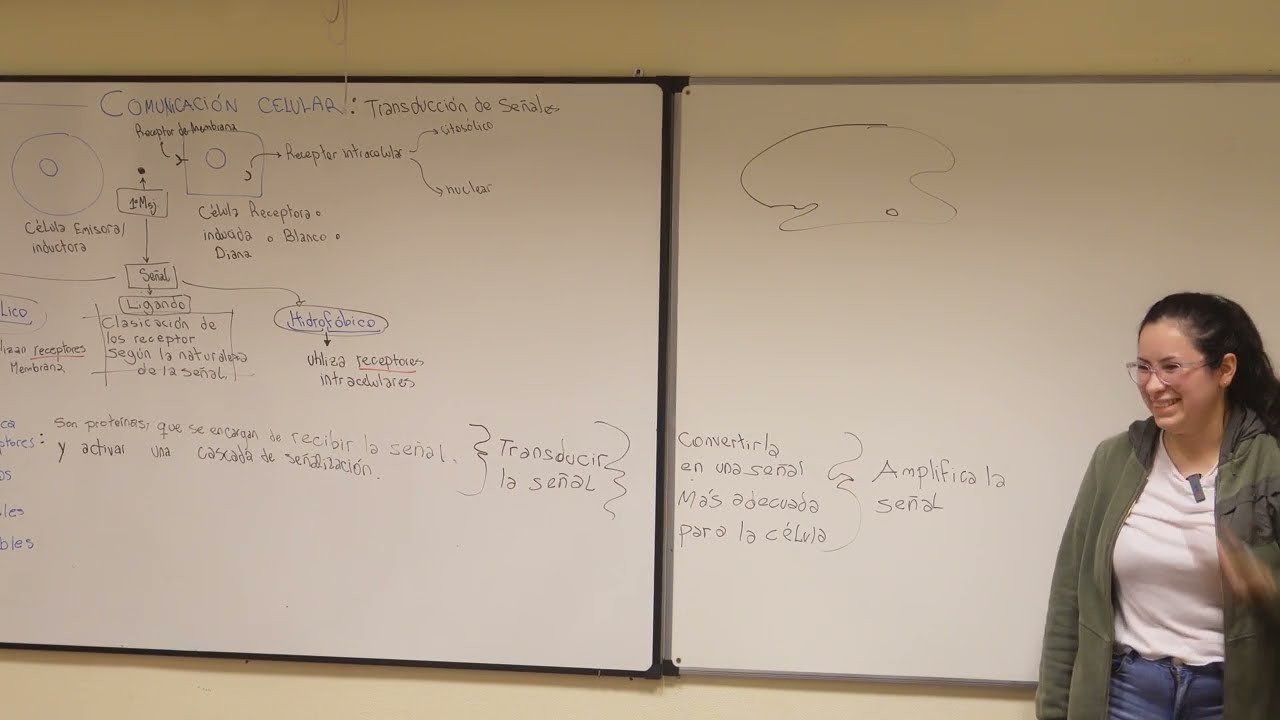 COMUNICACIÓN CELULAR: Transducción de Señales
Receptor de Membrana
citosólico
Receptor intracelular
nuclear
1º Msj
Célula Emisora/
inductora
Célula Receptora o
inducida o Blanco o
Diana
Señal
Ligando
Clasicación de
los receptor
según la naturaleza
de la señal.
lico
lizan receptores
Membrana.
Hidrofóbico
utiliza receptores
intracelulares
ca
ptores:
os
les
bles
Son proteínas, que se encargan de recibir la señal.
y activar una cascada de señalización.
Transducir
la señal
Convertirla
en una señal
Más adecuada
para la célula
Amplifica la
señal